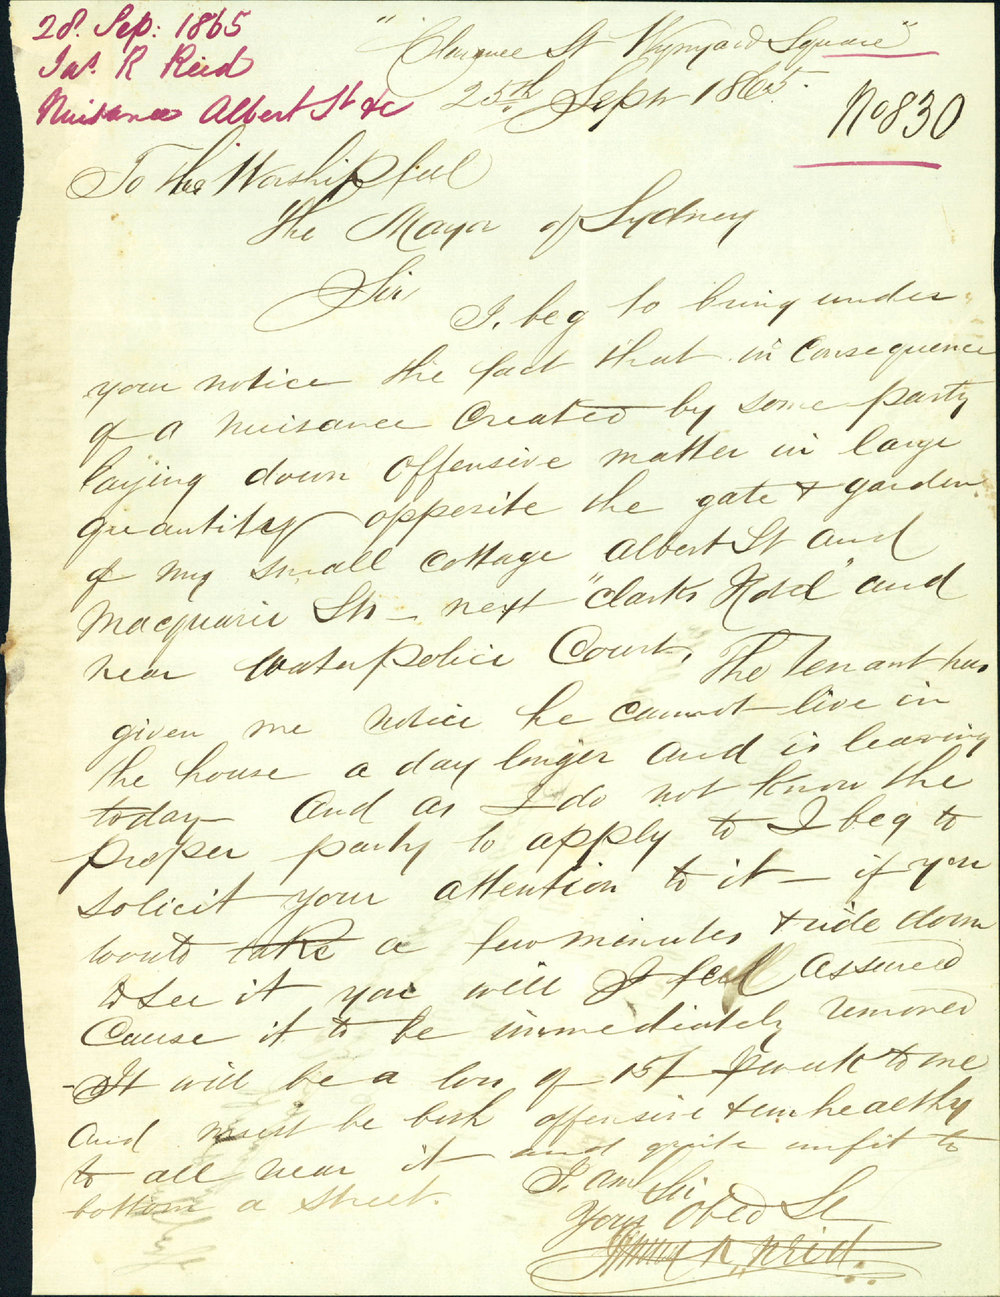 28. Sep: 1865
Jas. R Reid
Nuisance Albert St &c
"Clarence St Wynyard Square"
25th Sepr 1865
No 830
To the Worshipful
The Mayor of Sydney
Sir
I. beg to bring under
your notice the fact that in Consequence
of a Nuisance Created by some party
laying down offensive matter in large
quantity opposite the gate & garden
of my small cottage Albert St and
Macquarie Sts - next "Clarks Hotel" and
near Water police Court, The Tenant has
given me notice he cannot live in
the house a day longer and is leaving
today - And as I do not know the
proper party to apply to I beg to
solicit your attention to it - if you
would take a few minutes & ride down
to see it you will I feel assured
Cause it to be immediately removed
- It will be a loss of 15/- P week to me
and must be both offensive & unhealthy
to all near it - and quite unfit to
bottom a street.
I. am Sir
Your Obed St
James R. Reid.